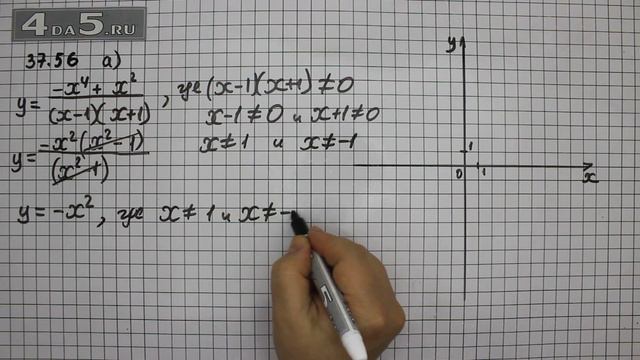 4DA5.RU
37.56 а)
y = (-x⁴ + x²)/((x-1)(x+1)), где (x-1)(x+1) ≠ 0
x-1≠0 и x+1≠0
y = (-x²(x²-1))/((x²-1))   x≠1 и x≠-1
y = -x², где x≠1 и x≠-
y
1
0 1
x